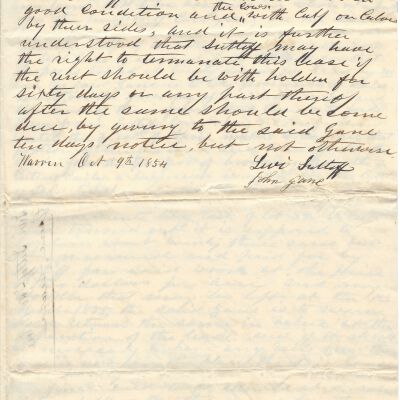 good condition and the cows with Calf or Calves
by their sides, and it is further
understood that Sutliff may have
the right to termanate this lease if
the rent should be with holden for
sixty days or any part thereof
after the same should become
due, by giving to the said Gane
ten days notice, but not otherwise
Warren Oct 9th 1854
Levi Sutliff
John Gane